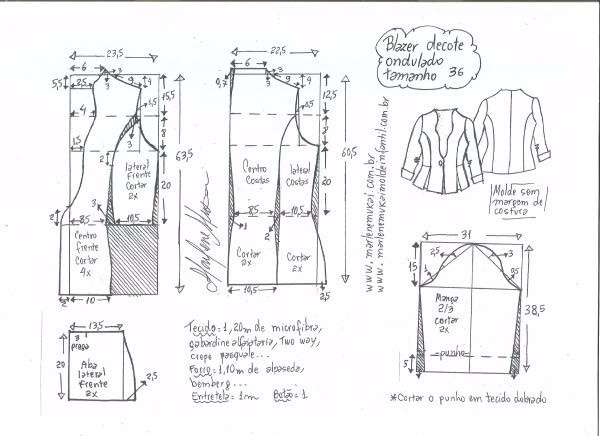 23,5
6
5,5
2,5
3
9
4
1,5
15,5
4
8
3
1,5
2
lateral
Frente
Cortar
2x
20
63,5
3
2
8,5
10,5
Centro
frente
Cortar
4x
2
10
22,5
6
0,7
3
9
4
1,5
12,5
8
Centro
Costas
lateral
Costas
20
60,5
8,5
10,5
1
2
Cortar
2x
Cortar
2x
10,5
2,5
Marlene Mukai
Blazer decote
ondulado
tamanho 36
www.marlenemukai.com.br
www.marlenemukaimoldeinfantil.com.br
Molde sem
margem de
costura
31
15
2,5
3
1
0,5
Manga
2/3
cortar
2x
38,5
punho
5
*Cortar o punho em tecido dobrado
13,5
3
prega
20
Aba
lateral
frente
2x
2,5
Tecido = 1,20m de microfibra,
gabardine alfaiataria, Two way,
crepe pasquale...
Forro = 1,10m de alpaseda,
bemberg...
Entretela = 1m Botão = 1